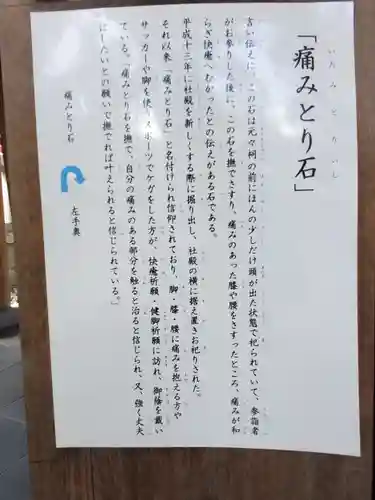 いたみとりいし
「痛みとり石」
言い伝えに、この石は元々祠の前にほんの少しだけ頭が出た状態で祀られていて、参詣者
がお参りした後に、この石を撫でさすり、痛みのあった膝や腰をさすったところ、痛みが和
らぎ快癒へむかったとの伝えがある石である。
平成十三年に社殿を新しくする際に掘り出し、社殿の横に据え置きお祀りされた。
それ以来「痛みとり石」と名付けられ信仰されており、脚・膝・腰に痛みを抱える方や
サッカーや脚を使うスポーツでケガをした方が、快癒祈願・健脚祈願に訪れ、御蔭を戴い
ている。「痛みとり石を撫で、自分の痛みのある部分を触ると治ると信じられ、又、強く丈夫
にしたいとの願いで撫でれば叶えられると信じられている。」
痛みとり石
左手奥